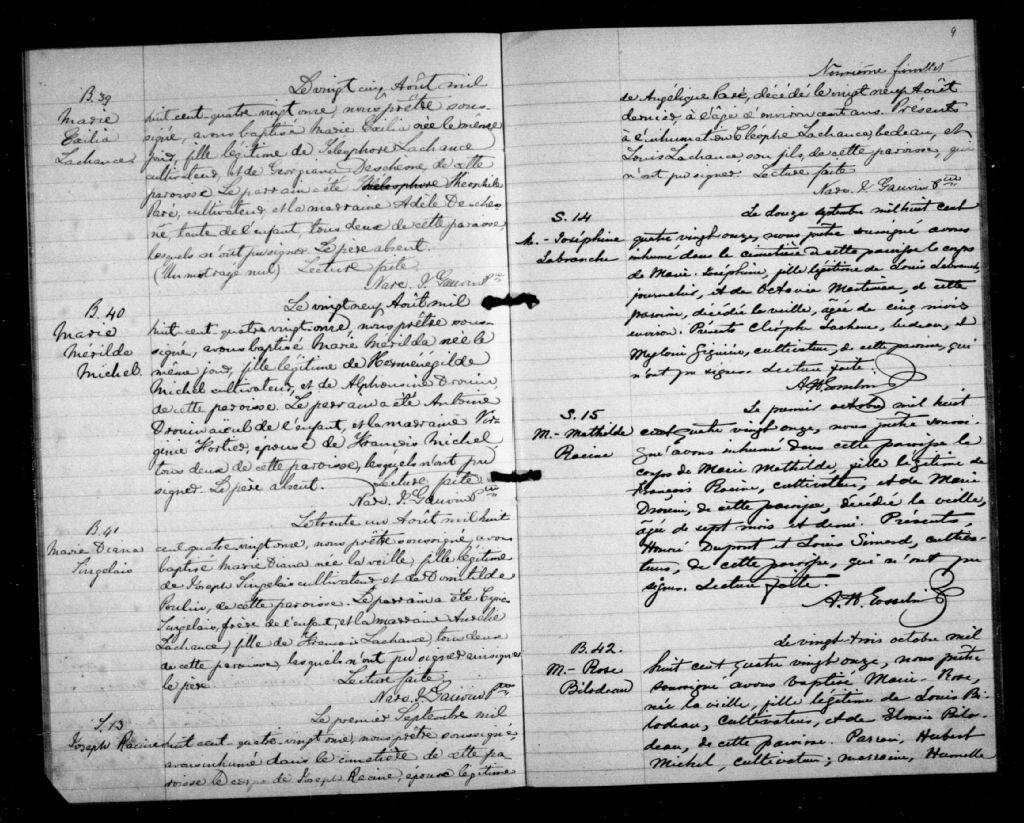 B.39
Marie
Cœcilia
Lachance
Le vingt cinq Août mil
huit-cent-quatre vingt onze, nous prêtre sous-
signé, avons baptisé Marie Cœcilia née le même
jour, fille légitime de Télesphore Lachance
cultivateur, et de Georgiana Deschêne, de cette
paroisse. Le parrain a été Télesphore Théophile
Paré, cultivateur, et la marraine Adèle Desche-
ne, tante de l'enfant, tous deux de cette paroisse,
lesquels n'ont pu signer. Le père absent.
(Un mot rayé nul) Lecture faite.
Narc. J. Gauvin Ptre
B.40
Marie
Mérilda
Michel
Le vingt neuf Août mil
huit-cent-quatre vingt onze, nous prêtre sous-
signé, avons baptisé Marie Mérilda née le
même jour, fille légitime de Herménégilde
Michel cultivateur, et de Alphonsine Drouin,
de cette paroisse. Le parrain a été Antoine
Drouin aïeul de l'enfant, et la marraine Vir-
ginie Fortier, épouse de Francois Michel
tous deux de cette paroisse, lesquels n'ont pu
signer. Le père absent. Lecture faite
Narc. J. Gauvin Ptre
B.41
Marie Diana
Singelais
Le trente un Août mil huit
cent quatre vingt onze, nous prêtre soussigné, avons
baptisé Marie Diana née la veille, fille légitime
de Joseph Singelais cultivateur et de Domitilde
Poulin, de cette paroisse. Le parrain a été Cyrs
Singelais, frère de l'enfant, et la marraine Aurélie
Lachance, fille de Francois Lachance, tous deux
de cette paroisse, lesquels n'ont pu signer ainsi que
le père. Lecture faite
Narc. J. Gauvin Ptre
S.13
Joseph Racine
Le premier Septembre mil
huit cent-quatre vingt onze, nous prêtre soussigné,
avons inhumé dans le cimetière de cette pa-
roisse le corps de Joseph Racine, époux légitime
9
Neuvième feuillet
de Angélique Paré, décédé le vingt neuf Août
dernier, à l'âge d'environ cent ans. Présents
à l'inhumation Cléophe Lachance, bedeau, et
Louis Lachance son fils, de cette paroisse, qui
n'ont pu signer. Lecture faite
Narc. J. Gauvin Ptre
S.14
M.-Joséphine
Labranche
Le douze septembre mil huit cent
quatre vingt onze, nous prêtre soussigné avons
inhumé dans le cimetière de cette paroisse le corps
de Marie Joséphine, fille légitime de Louis Labranche,
journalier, et de Octavie Martineau, de cette
paroisse, décédée la veille, âgée de cinq mois
environ. Présents Cléophe Lachance, bedeau, et
Giguère, cultivateur, de cette paroisse, qui
n'ont pu signer. Lecture faite.
A. H. Gosselin
S.15
M.-Mathilde
Racine
Le premier octobre mil huit
cent quatre vingt onze, nous prêtre soussi-
gné avons inhumé dans cette paroisse le
corps de Marie Mathilde, fille légitime de
François Racine, cultivateur, et de Marie
Drouin, de cette paroisse, décédée la veille,
âgée de sept mois et demi. Présents,
Honoré Dupont et Louis Simard, cultiva-
teurs, de cette paroisse, qui n'ont pu
signer. Lecture faite.
A. H. Gosselin
B.42.
M.-Rose
Bilodeau
Le vingt-trois octobre mil
huit cent quatre vingt onze, nous prêtre
soussigné avons baptisé Marie-Rose,
née la veille, fille légitime de Louis Bi-
lodeau, cultivateur, et de Elmire Bilo-
deau, de cette paroisse. Parrain, Hubert
Michel, cultivateur; marraine,